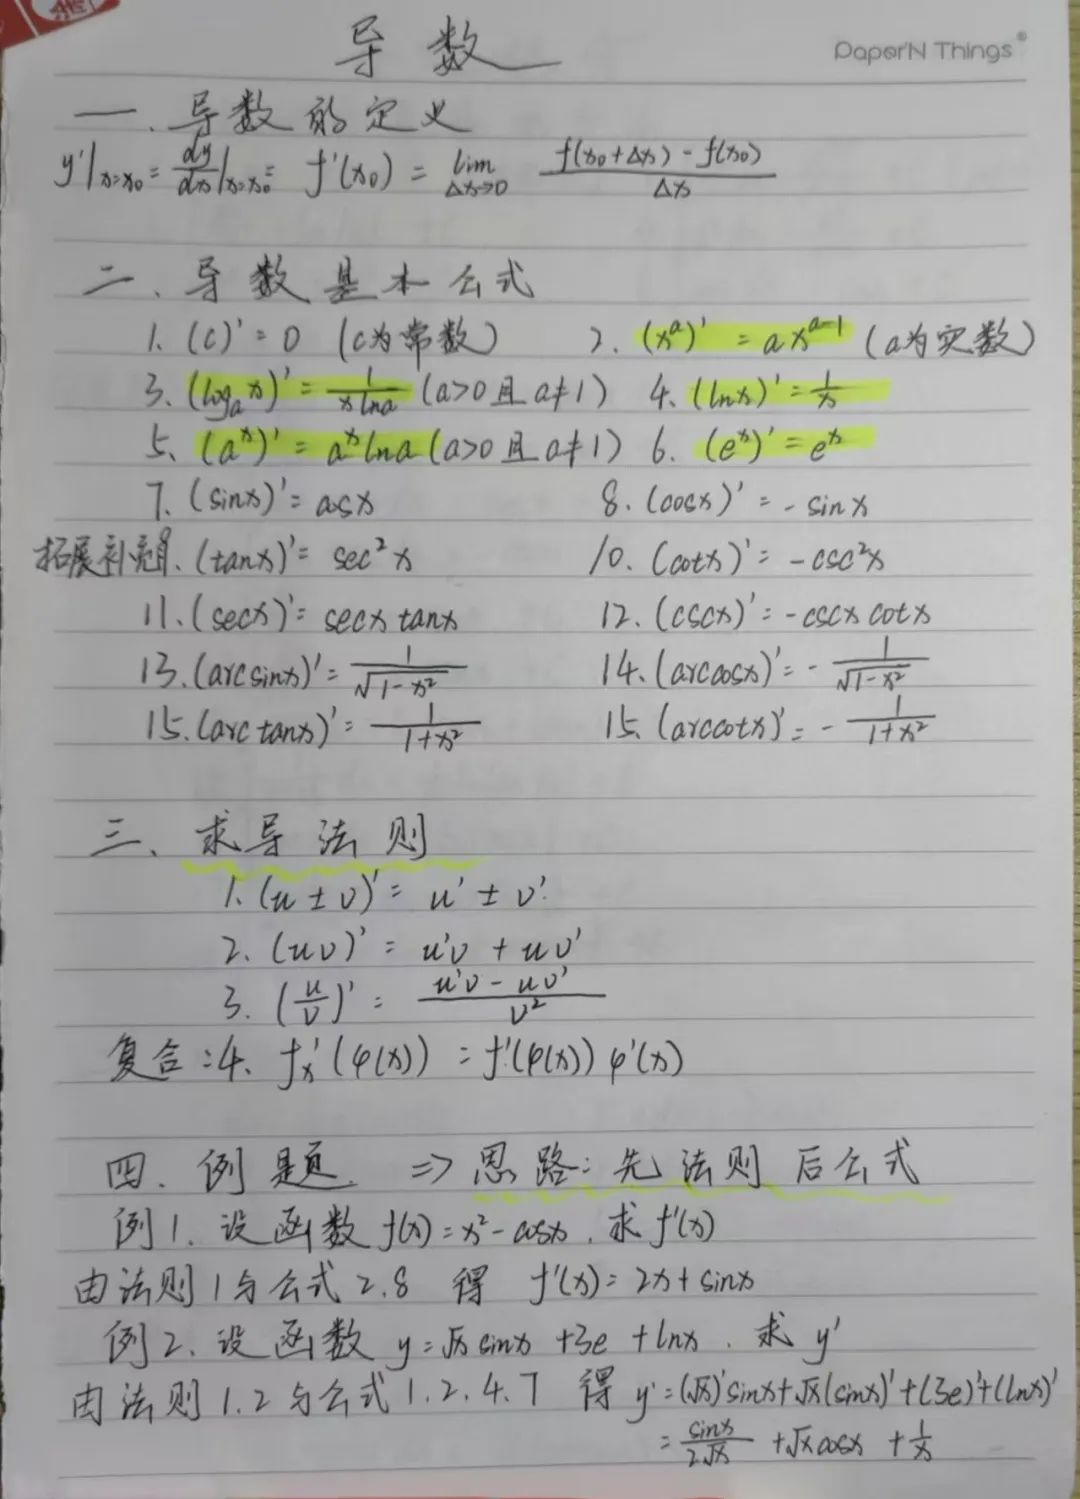 导数
PaperN Things®
一、导数的定义
y'|x=x₀ = dy/dx|x=x₀ = f'(x₀) = lim Δx→0 f(x₀+Δx) - f(x₀) / Δx
二、导数基本公式
1. (c)' = 0 (c为常数) 2. (xᵃ)' = a xᵃ⁻¹ (a为实数)
3. (logₐx)' = 1/(x lna) (a>0且a≠1) 4. (lnx)' = 1/x
5、(aˣ)' = aˣlna (a>0且a≠1) 6. (eˣ)' = eˣ
7. (sinx)' = cosx 8. (cosx)' = - sinx
拓展补充9、(tanx)' = sec²x 10. (cotx)' = -csc²x
11. (secx)' = secx tanx 12. (cscx)' = -cscx cotx
13. (arcsinx)' = 1/√(1-x²) 14. (arccosx)' = - 1/√(1-x²)
15. (arctanx)' = 1/(1+x²) 15. (arccotx)' = - 1/(1+x²)
三、求导法则
1. (u±v)' = u' ± v'.
2. (uv)' = u'v + uv'
3. (u/v)' = (u'v - uv')/v²
复合:4、fₓ'(φ(x)) = f'(φ(x)) φ'(x)
四、例题 ⇒ 思路:先法则 后公式
例1. 设函数f(x) = x² - cosx. 求f'(x)
由法则1与公式2.8 得 f'(x) = 2x + sinx
例2. 设函数 y = √x sinx + 3e + lnx. 求 y'
由法则1.2与公式1.2.4.7 得 y' = (√x)'sinx + √x(sinx)' + (3e)' + (lnx)'
= sinx/(2√x) + √x cosx + 1/x